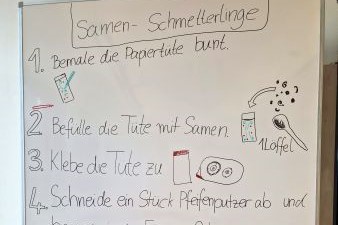 Samen-Schmetterlinge
1. Bemale die Papertüte bunt.
2 Befülle die Tüte mit Samen.
1 Löffel
3. Klebe die Tüte zu
4. Schneide ein Stück Pfeifenputzer ab und